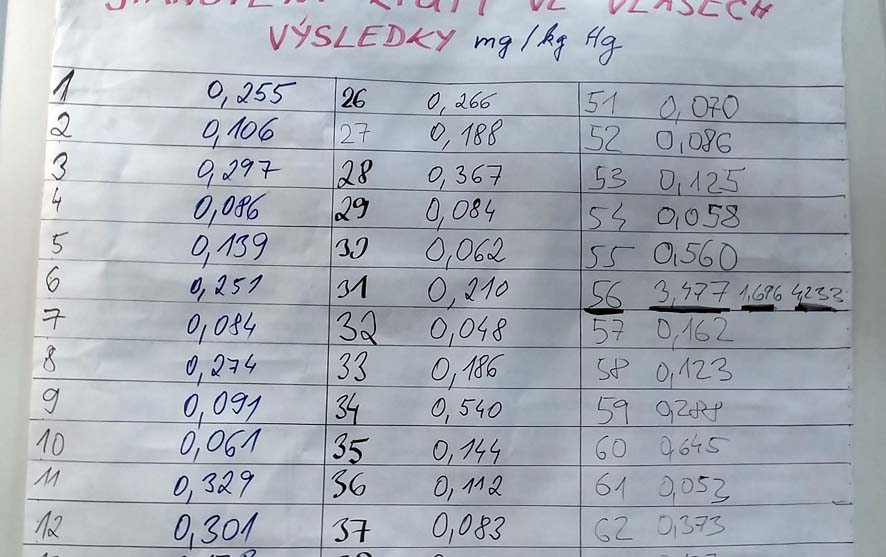 VE VLASECH
VÝSLEDKY mg/kg Hg
1 0,255 26 0,266 51 0,070
2 0,106 27 0,188 52 0,086
3 0,297 28 0,367 53 0,125
4 0,086 29 0,084 54 0,058
5 0,139 30 0,062 55 0,560
6 0,251 31 0,210 56 3,477 1,696 4,233
7 0,084 32 0,048 57 0,162
8 0,274 33 0,186 58 0,123
9 0,091 34 0,540 59 0,288
10 0,061 35 0,144 60 0,645
11 0,329 36 0,112 61 0,053
12 0,301 37 0,083 62 0,373